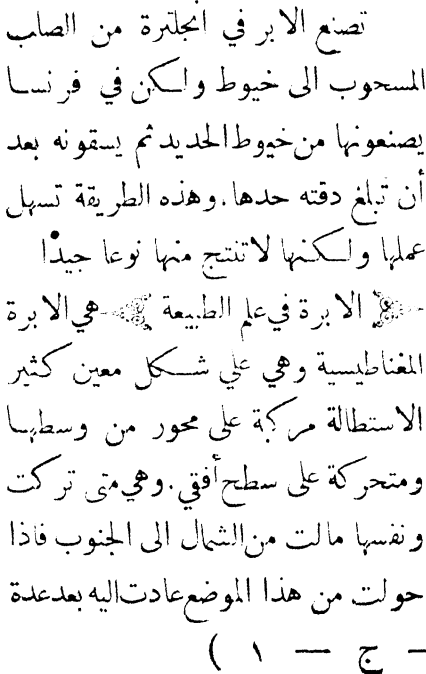 تصنع الابر في انجلترة من الصلب
المسحوب الى خيوط ولكن في فرنسا
يصنعونها من خيوط الحديد ثم يسقونه بعد
أن تبلغ دقته حدها. وهذه الطريقة تسهل
عملها ولكنها لا تنتج منها نوعا جيدًا
الابرة في علم الطبيعة هي الابرة
المغناطيسية وهي علي شكل معين كثير
الاستطالة مركبة على محور من وسطها
ومتحركة على سطح أفقي. وهي متى تركت
ونفسها مالت من الشمال الى الجنوب فاذا
حولت من هذا الموضع عادت اليه بعد عدة
— ج — ١ )